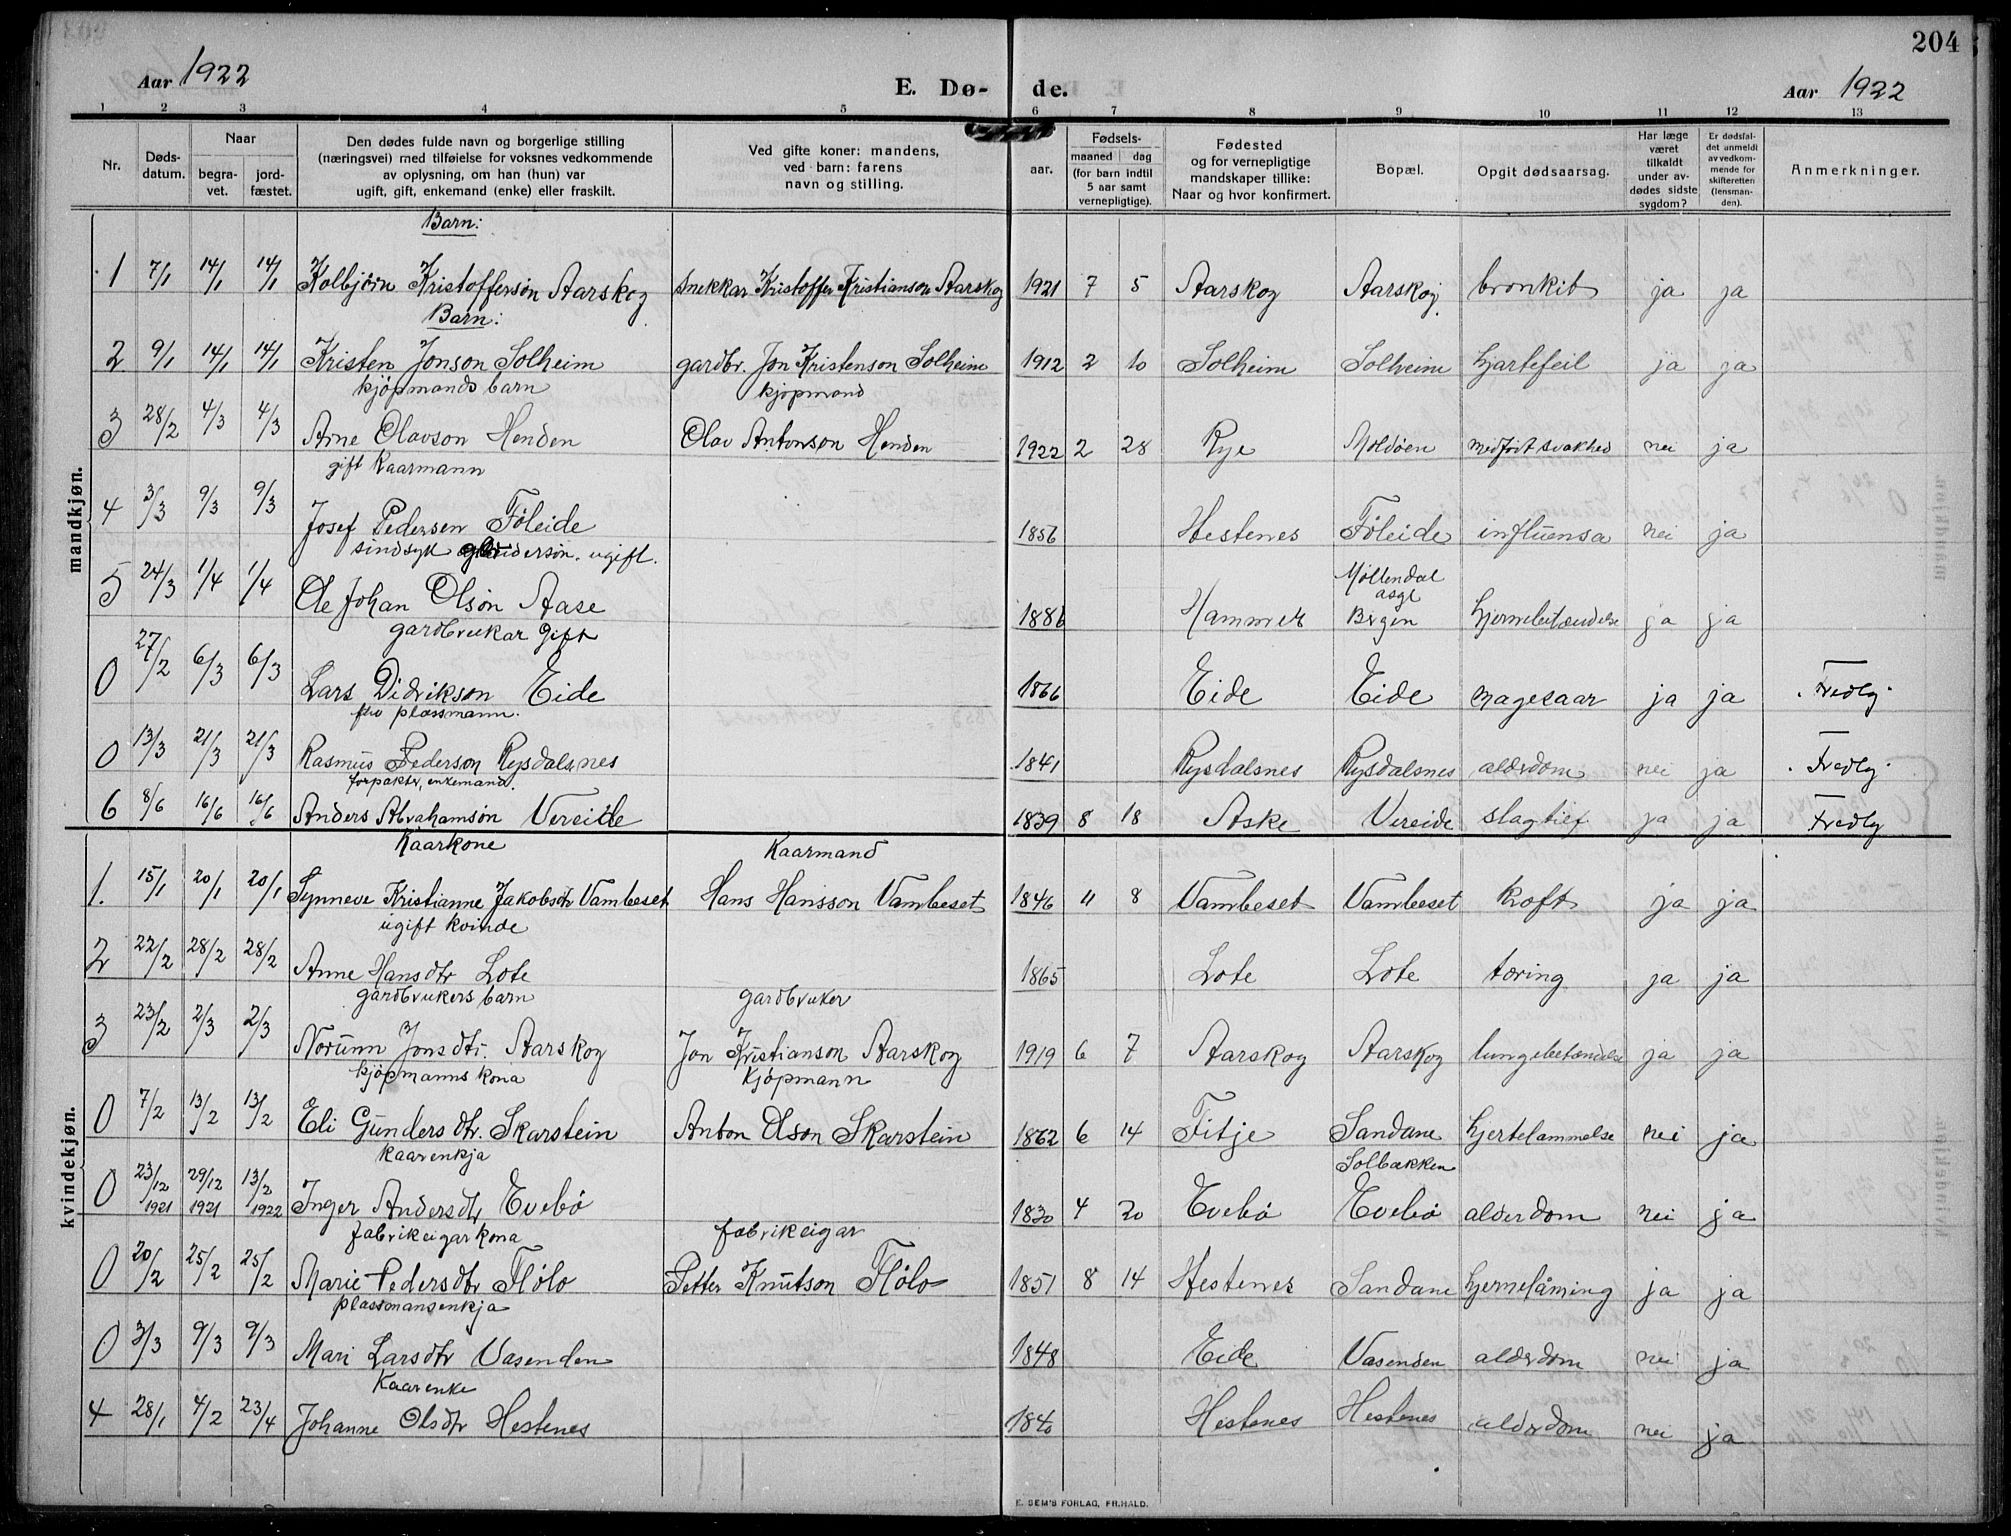 204
Aar 1922
E. Dø- de.
Aar 1922
1 2 3 4 5 6 7 8 9 10 11 12 13
Nr.
Døds-datum.
Naar
begra-vet.
jord-fæstet.
Den dødes fulde navn og borgerlige stilling
(næringsvei) med tilføielse for voksnes vedkommende
av oplysning, om han (hun) var
ugift, gift, enkemand (enke) eller fraskilt.
Ved gifte koner: mandens,
ved barn: farens
navn og stilling.
aar.
Fødsels-
maaned dag
(for barn indtil
5 aar samt
vernepligtige).
Fødested
og for vernepligtige
mandskaper tillike:
Naar og hvor konfirmert.
Bopæl.
Opgit dødsaarsag.
Har læge
været
tilkaldt
under av-
dødes sidste
sygdom?
Er dødsfal-
det anmeldt
av vedkom-
mende for
skifteretten
(lensman-
den).
Anmerkninger.
mandkjøn.
Barn:
1 7/1 14/1 14/1 Kolbjörn Kristofferson Aarskog Snekkar Kristoffer Kristianson Aarskog 1921 7 5 Aarskog Aarskog. bronkit ja ja
Barn:
2 9/1 14/1 14/1 Kristen Jonson Solheim gardbr. Jon Kristenson Solheim 1912 2 10 Solheim Solheim hjartefeil ja ja
kjöpmands barn kjöpmand
3 28/2 4/3 4/3 Arne Olavson Henden Olav Antonson Henden 1922 2 28 Rye Moldöen medfödt svakhed nei ja
gift kaarmann
4 3/3 9/3 9/3 Josef Pedersen Föleide 1856 Hestenes Föleide influensa nei ja
sindsyk ugift.
5 24/3 1/4 1/4 Ole Johan Olsön Aase 1886 Hammer Möllendal asyl Bergen hjernebetændelse ja ja
gardbrukar gift
0 27/2 6/3 6/3 Lars Didrikson Eide 1866 Eide Eide magesaar ja ja Fredlg.
fhv plassmann.
0 13/3 21/3 21/3 Rasmus Pederson Rysdalsnes 1841 Rysdalsnes Rysdalsnes alderdom nei ja Fredlg.
forpakter, enkemand.
6 8/6 16/6 16/6 Anders Abrahamsön Vereide 1839 8 18 Aske Vereide slagtilf ja ja Fredlg
kvindekjøn.
Kaarkone Kaarmand
1. 15/1 20/1 20/1 Synneve Kristianne Jakobsdtr Vambeset Hans Hansson Vambeset 1846 11 8 Vambeset Vambeset kræft ja ja
ugift kvinde
2 22/2 28/2 28/2 Anne Hansdtr Lote 1865 Lote Lote tæring ja ja
gardbrukers barn gardbruker
3 23/2 2/3 2/3 Norunn Jonsdtr. Aarskog Jon Kristianson Aarskog 1919 6 7 Aarskog Aarskog lungebetændelse ja ja
kjöpmanns kona kjöpmann
0 7/2 13/2 13/2 Eli Gundersdtr. Skarstein Anton Olson Skarstein 1862 6 14 Fitje Sandane hjertelammelse nei ja
kaarenkja Solbakken
0 23/12 1921 29/12 1921 13/2 1922 Inger Andersdtr Evebö 1830 4 20 Evebö Evebö alderdom nei ja
fabrikeigarkona fabrikeigar
0 20/2 25/2 25/2 Marie Pedersdtr Flölo Petter Knutson Flölo 1851 8 14 Hestenes Sandane hjernelåming ja ja
plassmansenkja
0 3/3 9/3 9/3 Mari Larsdtr Vasenden 1848 Eide Vasenden alderdom nei ja
Kaarenke
4 28/1 4/2 23/4 Johanne Olsdtr Hestenes 1840 Hestenes Hestenes alderdom nei ja
E. SEM'S FORLAG, FR.HALD.